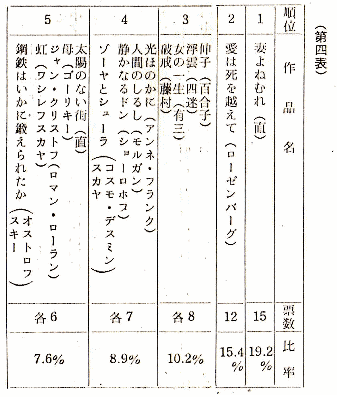 （第四表）
順位
作品名
票数
比率
1
妻よねむれ（直）
15
19.2%
2
愛は死を越えて（ローゼンバーグ）
12
15.4%
3
伸子（百合子）
浮雲（四迷）
女の一生（有三）
破戒（藤村）
各8
10.2%
4
光ほのかに（アンネ・フランク）
人間のしるし（モルガン）
静かなるドン（ショーロホフ）
ゾーヤとシューラ（コスモ・デスミンスカヤ）
各7
8.9%
5
太陽のない街（直）
母（ゴーリキー）
ジャン・クリストフ（ロマン・ローラン）
虹（ワシレフスカヤ）
鋼鉄はいかに鍛えられたか（オストロフスキー）
各6
7.6%